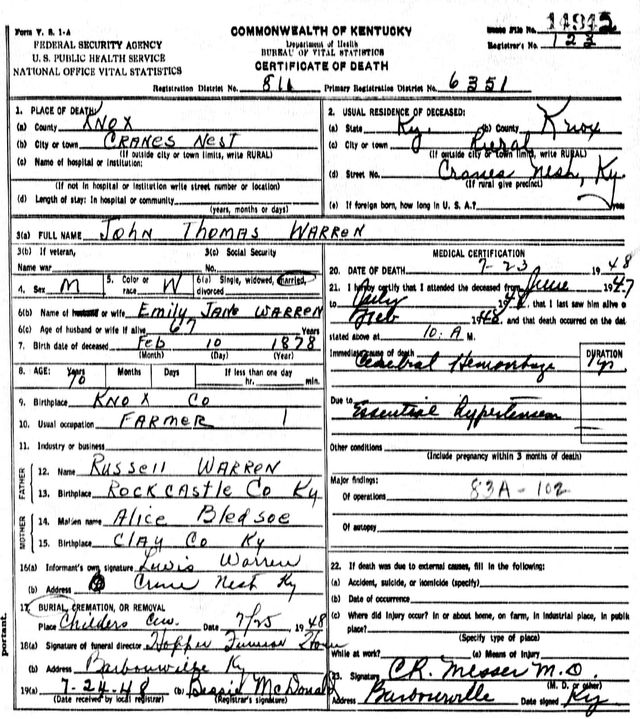 Form V. S. 1-A
FEDERAL SECURITY AGENCY
U. S. PUBLIC HEALTH SERVICE
NATIONAL OFFICE VITAL STATISTICS
COMMONWEALTH OF KENTUCKY
Department of Health
BUREAU OF VITAL STATISTICS
CERTIFICATE OF DEATH
File No.
Registrar's No. 122
Registration District No. 811 Primary Registration District No. 6351
1. PLACE OF DEATH
(a) County KNOX
(b) City or town CRANES NEST
(If outside city or town limits, write RURAL)
(c) Name of hospital or institution:
(If not in hospital or institution write street number or location)
(d) Length of stay: In hospital or community
(years, months or days)
2. USUAL RESIDENCE OF DECEASED:
(a) State Ky. (b) County Knox
(c) City or town Rural
(If outside city or town limits, write RURAL)
(d) Street No. Cranes Nest, Ky
(If rural give precinct)
(e) If foreign born, how long in U. S. A.? years
3(a) FULL NAME JOHN THOMAS WARREN
3(b) If veteran, 3(c) Social Security
Name war No.
4. Sex M 5. Color or race W 6(a) Single, widowed, married, divorced
6(b) Name of husband or wife Emily JANE WARREN
6(c) Age of husband or wife if alive 67 Years
7. Birth date of deceased Feb 10 1878
(Month) (Day) (Year)
8. AGE: Years Months Days If less than one day
70 hr. min.
9. Birthplace KNOX CO
10. Usual occupation FARMER
11. Industry or business
FATHER
12. Name RUSSELL WARREN
13. Birthplace ROCKCASTLE Co Ky
MOTHER
14. Maiden name Alice Bledsoe
15. Birthplace CLAY Co Ky
16(a) Informant's own signature Lewis Warren
(b) Address Crane Nest Ky
17. BURIAL, CREMATION, OR REMOVAL
Place Childers Cem. Date 7/25 1948
18(a) Signature of funeral director Hopper Funeral Home
(b) Address Barbourville Ky
19(a) 7-24-48 (b) Bessie McDonald
(Date received by local registrar) (Registrar's signature)
MEDICAL CERTIFICATION
20. DATE OF DEATH 7-23 1948
21. I hereby certify that I attended the deceased from June 1947
to July 1948, that I last saw him alive o
Feb 1948, and that death occurred on the dat
stated above at 10: A M.
Immediate cause of death DURATION
Cerebral Hemorrhage 1 yr
Due to
Essential Hypertension
Other conditions
(Include pregnancy within 3 months of death)
Major findings:
Of operations 83A-102
Of autopsy
22. If death was due to external causes, fill in the following:
(a) Accident, suicide, or homicide (specify)
(b) Date of occurrence
(c) Where did injury occur? In or about home, on farm, in industrial place, in public
place?
(Specify type of place)
While at work? (e) Means of Injury
23. Signature CR. Messer M.D.
(M. D. or other)
Address Barbourville Date signed Ky
portant.